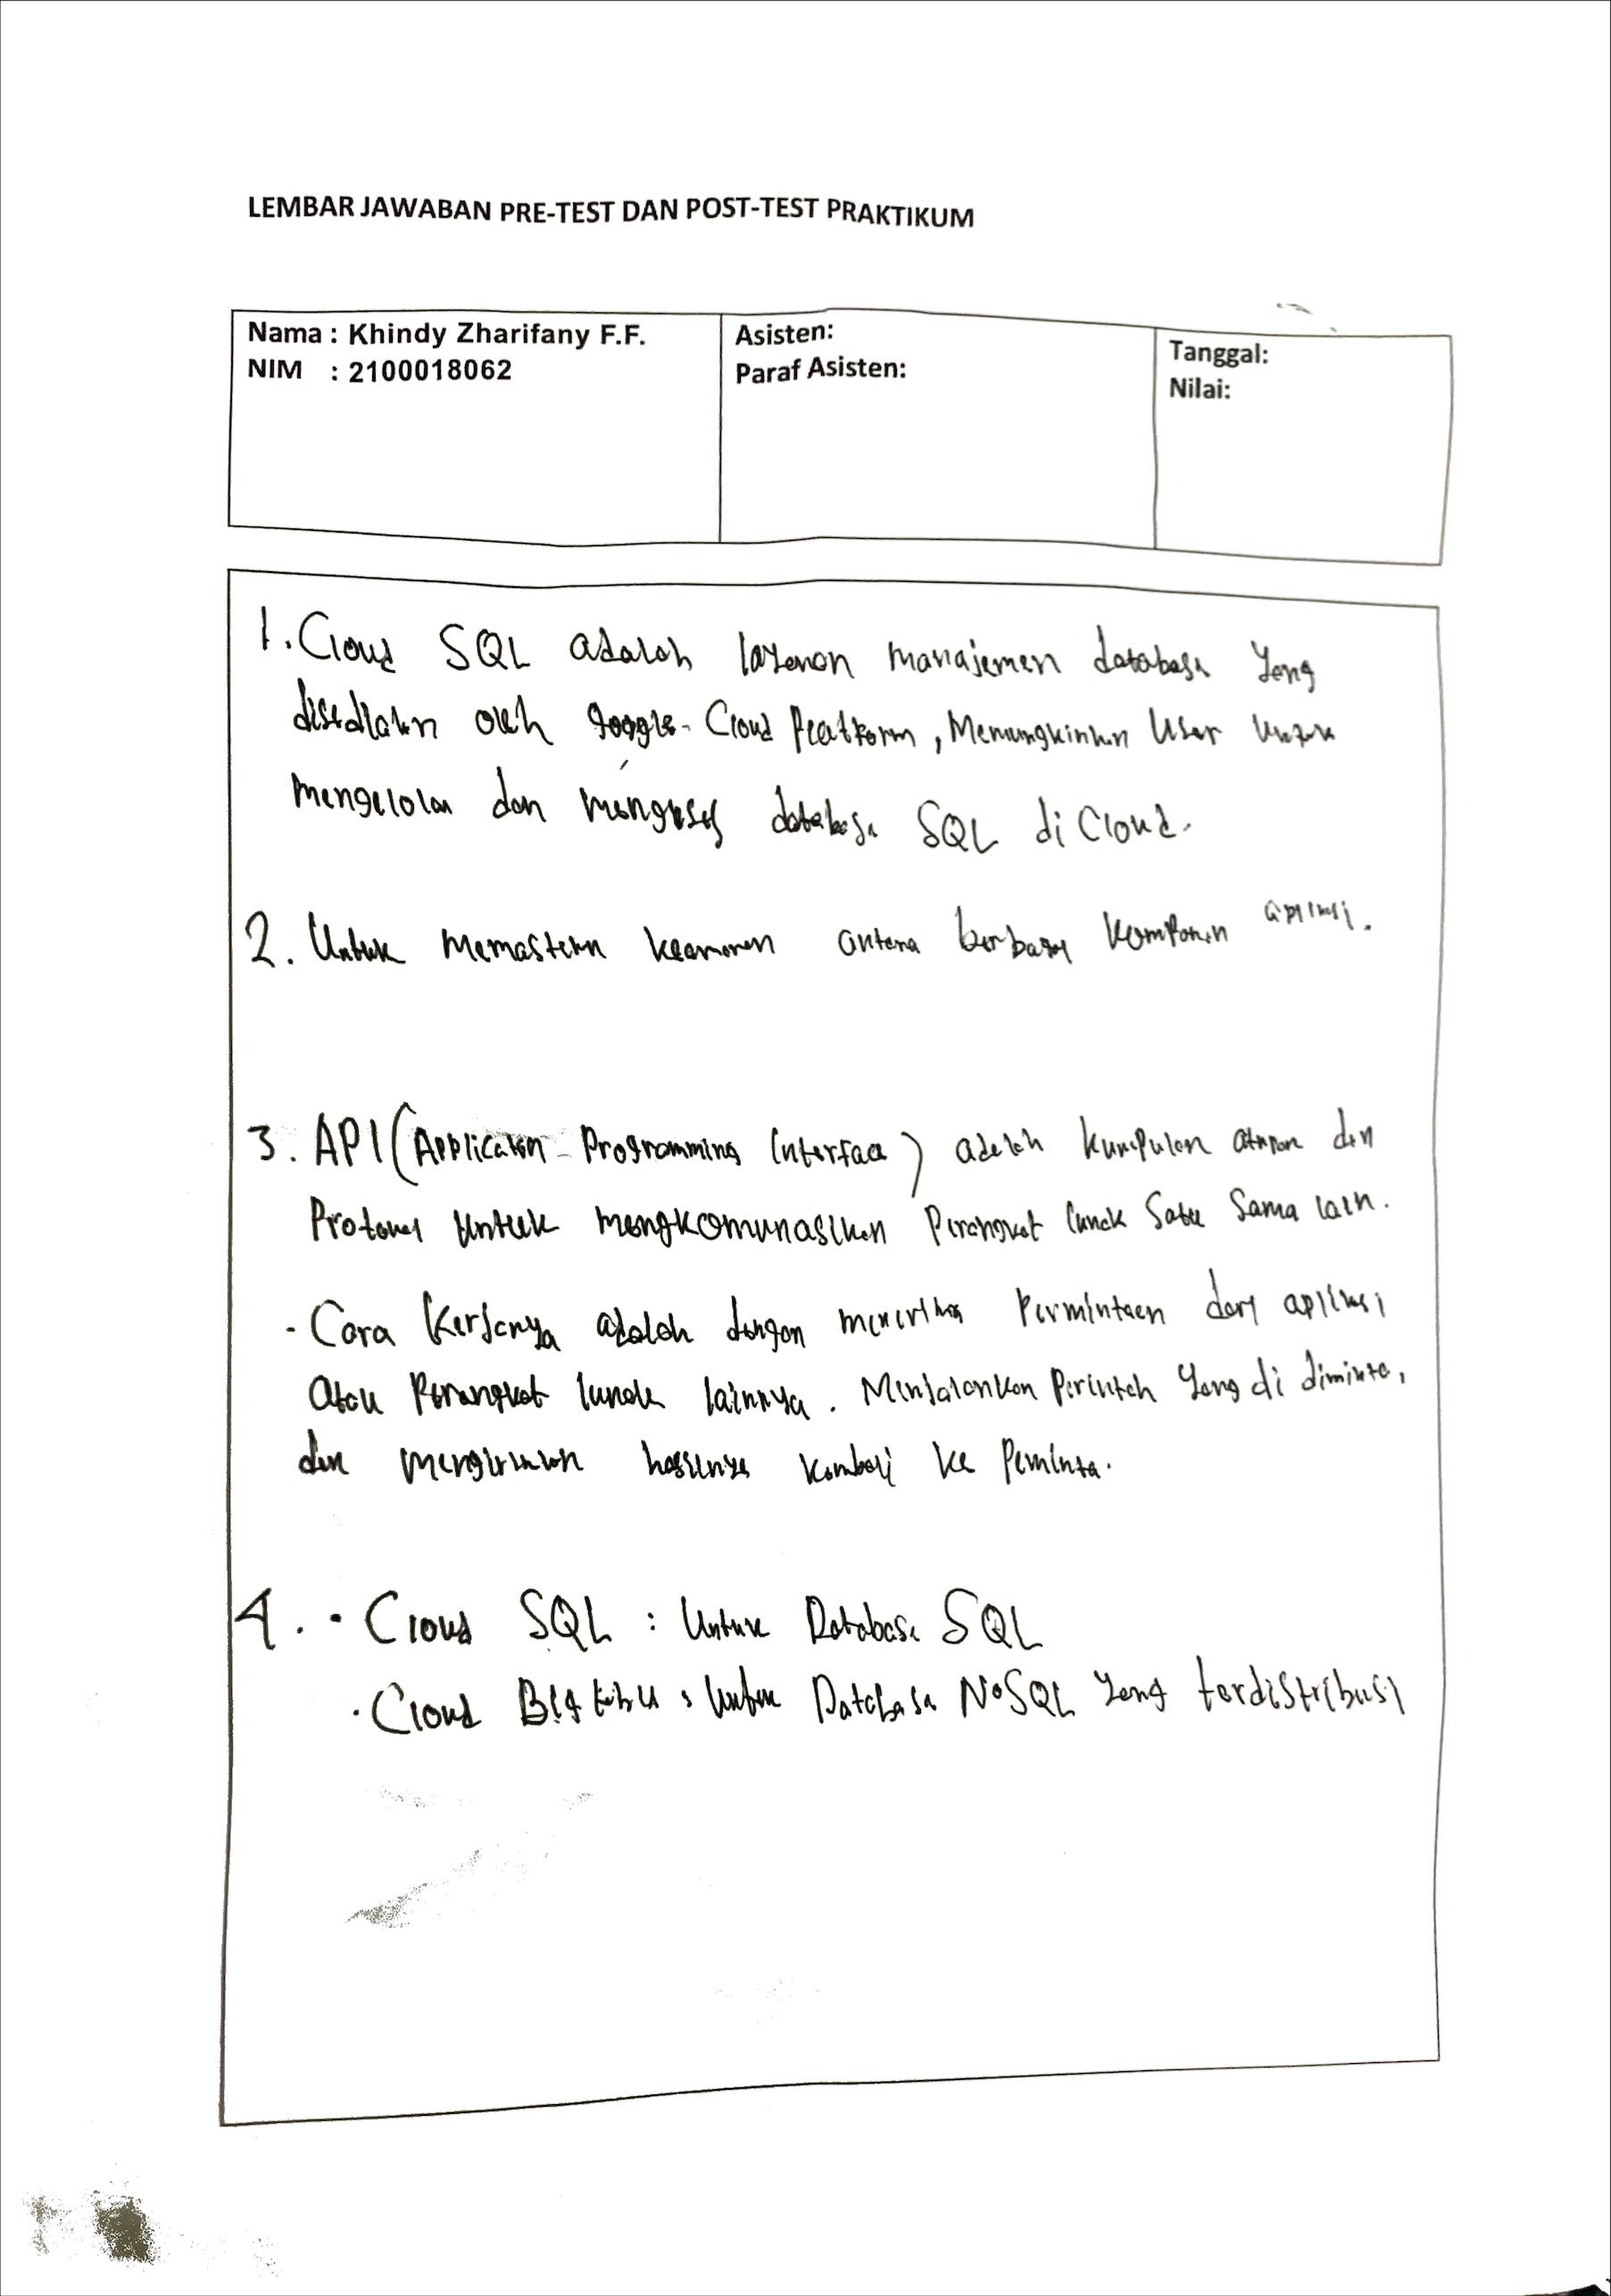 LEMBAR JAWABAN PRE-TEST DAN POST-TEST PRAKTIKUM
Nama : Khindy Zharifany F.F.
NIM : 2100018062
Asisten:
Paraf Asisten:
Tanggal:
Nilai:
1. Cloud SQL adalah layanan manajemen database yang
disediakan oleh google Cloud Platform, Memungkinkan User untuk
mengelola dan mengakses database SQL di Cloud.
2. Untuk memastikan keamanan antara berbagai komponen aplikasi.
3. API (Application Programming Interface) adalah kumpulan aturan dan
Protokol untuk mengkomunasikan Perangkat lunak Satu Sama lain.
- Cara Kerjanya adalah dengan menerima Permintaan dari aplikasi
atau Perangkat lunak lainnya. Menjalankan Perintah Yang di diminta,
dan mengirimkan hasilnya kembali ke Peminta.
4. • Cloud SQL : Untuk Database SQL
• Cloud : Untuk Database NoSQL Yang terdistribusi